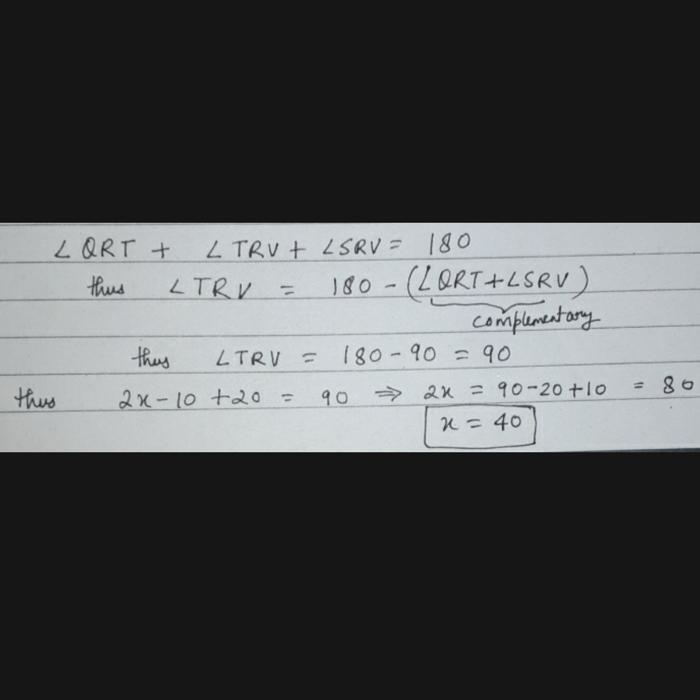 ∠QRT + ∠TRV + ∠SRV = 180
thus ∠TRV = 180 - (∠QRT + ∠SRV)
complementary
thus ∠TRV = 180 - 90 = 90
thus 2x - 10 + 20 = 90 ⇒ 2x = 90 - 20 + 10 = 80
x = 40